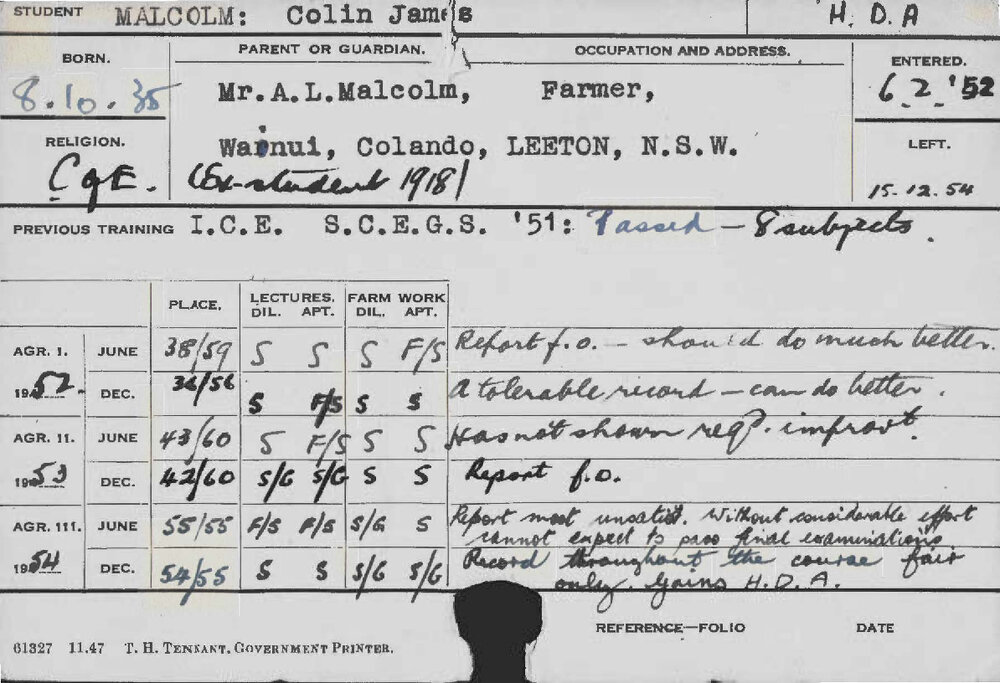 STUDENT MALCOLM: Colin James H. D. A
BORN. PARENT OR GUARDIAN. OCCUPATION AND ADDRESS. ENTERED.
8.10.35 Mr.A.L.Malcolm, Farmer, 6.2.'52
RELIGION. Warnui, Colando, LEETON, N.S.W. LEFT.
C of E. (Ex-student 1918) 15.12.54
PREVIOUS TRAINING I.C.E. S.C.E.G.S. '51: Passed – 8 subjects.
PLACE. LECTURES. FARM WORK
DIL. APT. DIL. APT.
AGR. I. JUNE 38/59 S S S F/S Report f.o. – should do much better.
1952. DEC. 36/56 S F/S S S A tolerable record – can do better.
AGR. II. JUNE 43/60 S F/S S S Has not shown reqd. improvt.
1953 DEC. 42/60 S/G S/G S S Report f.o.
AGR. III. JUNE 55/55 F/S F/S S/G S Report most unsatisf. Without considerable effort
cannot expect to pass final examinations
1954 DEC. 54/55 S S S/G S/G Record throughout the course fair
only. Gains H.D.A.
REFERENCE—FOLIO DATE
61327 11.47 T. H. TENNANT, GOVERNMENT PRINTER.